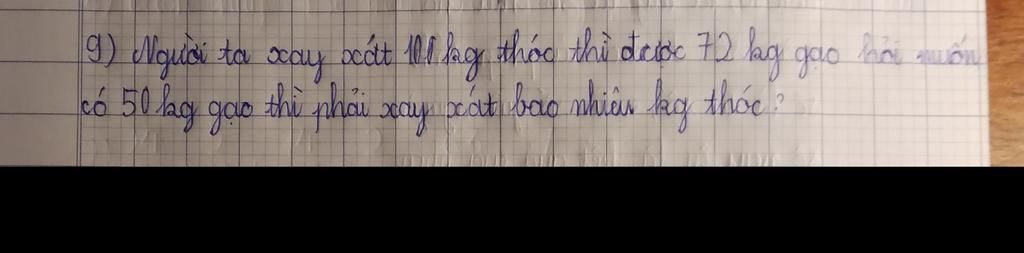 9) Người ta xay xát 100 kg thóc thì được 72 kg gạo hỏi muốn
có 50 kg gạo thì phải xay xát bao nhiêu kg thóc?